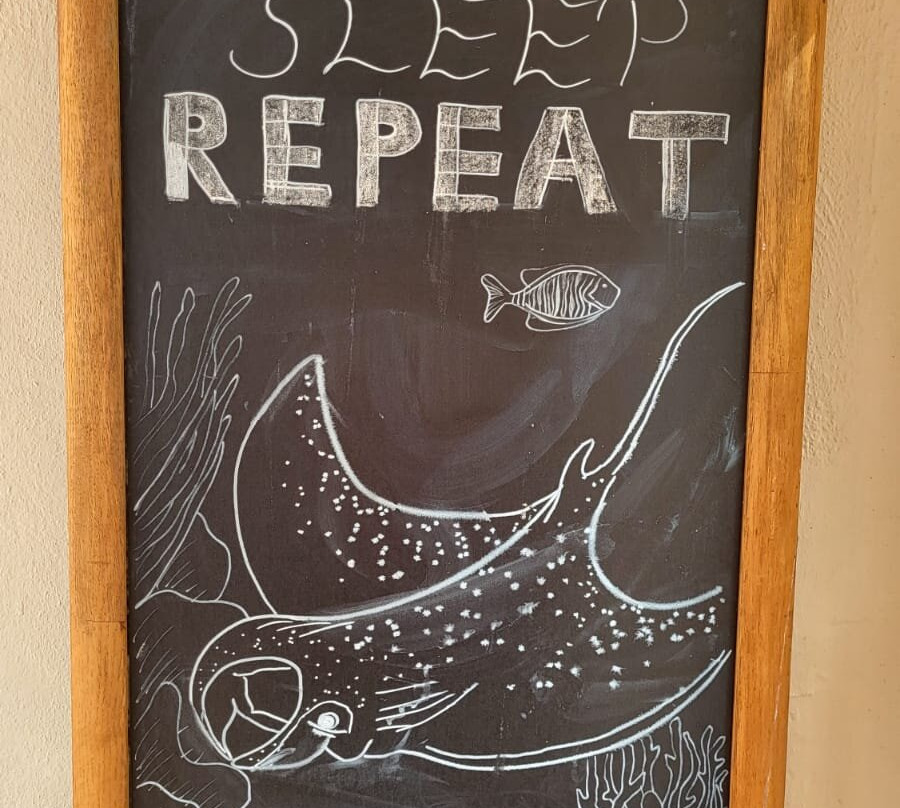 SLEEP
REPEAT